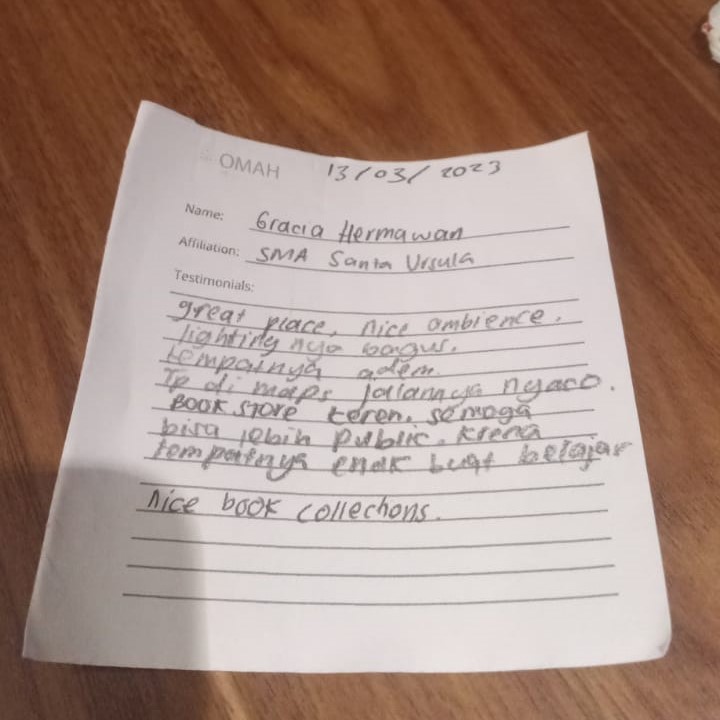 OMAH 13/03/2023
Name: Gracia Hermawan
Affiliation: SMA Santa Ursula
Testimonials:
great place, nice ambience.
lighting nya bagus.
tempatnya adem.
Tp di maps jalannya nyaco.
BOOK STORE keren. semoga
bisa lebih public. krena
tempatnya enak buat belajar
nice book collections.